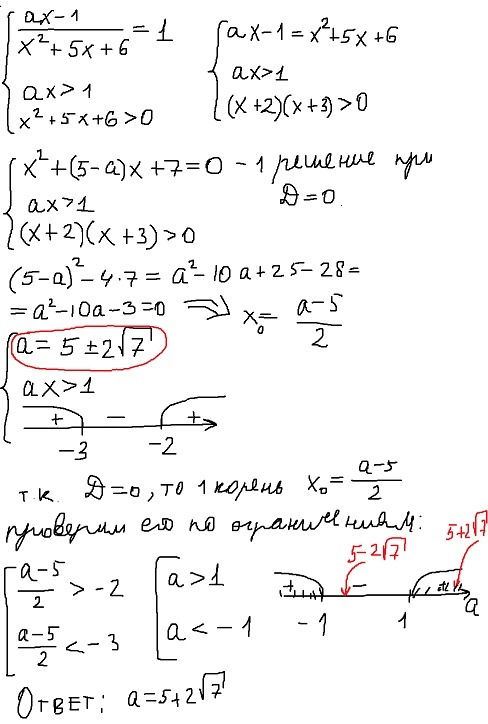 (ax-1)/(x²+5x+6) = 1
ax-1 = x²+5x+6
ax>1
ax>1
x²+5x+6>0
(x+2)(x+3)>0
x²+(5-a)x+7=0 - 1 решение при
ax>1
D=0.
(x+2)(x+3)>0
(5-a)²-4·7 = a²-10a+25-28=
=a²-10a-3=0 ⇒ x₀= (a-5)/2
a= 5±2√7
ax>1
+ - +
-3 -2
т.к. D=0, то 1 корень x₀= (a-5)/2
проверим его по ограничениям:
5-2√7 5+2√7
(a-5)/2 > -2
a>1
+ - +
(a-5)/2 < -3
a< -1
-1 1 a
Ответ: a=5+2√7